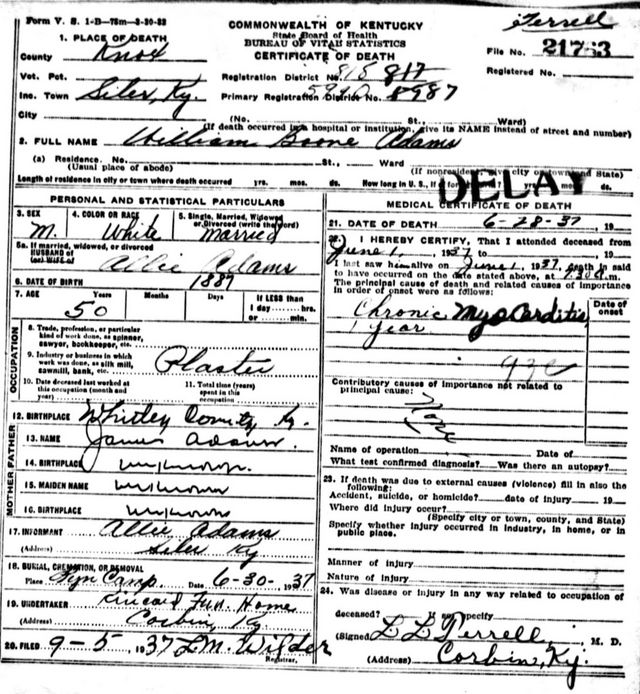 Form V. S. 1-B-75m-3-30-32
COMMONWEALTH OF KENTUCKY
State Board of Health
BUREAU OF VITAL STATISTICS
CERTIFICATE OF DEATH
Terrell
File No. 21763
Registered No.
1. PLACE OF DEATH
County Knox
Vot. Pct.
Inc. Town Siler, Ky.
City
Registration District No. 815 817
Primary Registration District No. 5987
(No. St., Ward)
(If death occurred in a hospital or institution, give its NAME instead of street and number)
2. FULL NAME William Boone Adams
(a) Residence. No. St., Ward
(Usual place of abode) (If nonresident give city or town and State)
Length of residence in city or town where death occurred yrs. mos. ds. How long in U. S., if of foreign birth? yrs. mos. ds.
DELAY
PERSONAL AND STATISTICAL PARTICULARS
3. SEX M.
4. COLOR OR RACE White
5. Single, Married, Widowed or Divorced (write the word) Married
5a. If married, widowed, or divorced
HUSBAND of
(or) WIFE of Allie Adams
6. DATE OF BIRTH 1887
7. AGE Years 50 Months Days If LESS than
1 day hrs.
or min.
OCCUPATION
8. Trade, profession, or particular
kind of work done, as spinner,
sawyer, bookkeeper, etc.
9. Industry or business in which
work was done, as silk mill,
sawmill, bank, etc. Plaster
10. Date deceased last worked at
this occupation (month and
year)
11. Total time (years)
spent in this
occupation
12. BIRTHPLACE Whitley County Ky.
MOTHER FATHER
13. NAME James Adams
14. BIRTHPLACE unknown.
15. MAIDEN NAME unknown
16. BIRTHPLACE unknown
17. INFORMANT Allie Adams
(Address) Siler Ky
18. BURIAL, CREMATION, OR REMOVAL
Place Camp Date 6-30-1937
19. UNDERTAKER Kincaid Fun. Home
(Address) Corbin, Ky.
20. FILED 9-5 1937 L.M. Wilder
Registrar.
MEDICAL CERTIFICATE OF DEATH
21. DATE OF DEATH 6-28-37, 19
22. I HEREBY CERTIFY, That I attended deceased from
June 1, 1937 to 19
I last saw him alive on June 1, 1937, death is said
to have occurred on the date stated above, at 7:30 a.m.
The principal cause of death and related causes of importance
in order of onset were as follows:
Date of onset
Chronic Myocarditis
1 year
93c
Contributory causes of importance not related to
principal cause:
None
Name of operation Date of
What test confirmed diagnosis? Was there an autopsy?
23. If death was due to external causes (violence) fill in also the
following:
Accident, suicide, or homicide? date of injury 19
Where did injury occur?
(Specify city or town, county, and State)
Specify whether injury occurred in industry, in home, or in
public place.
Manner of injury
Nature of injury
24. Was disease or injury in any way related to occupation of
deceased? If so, specify
(Signed) L L Terrell, M. D.
(Address) Corbin, Ky.